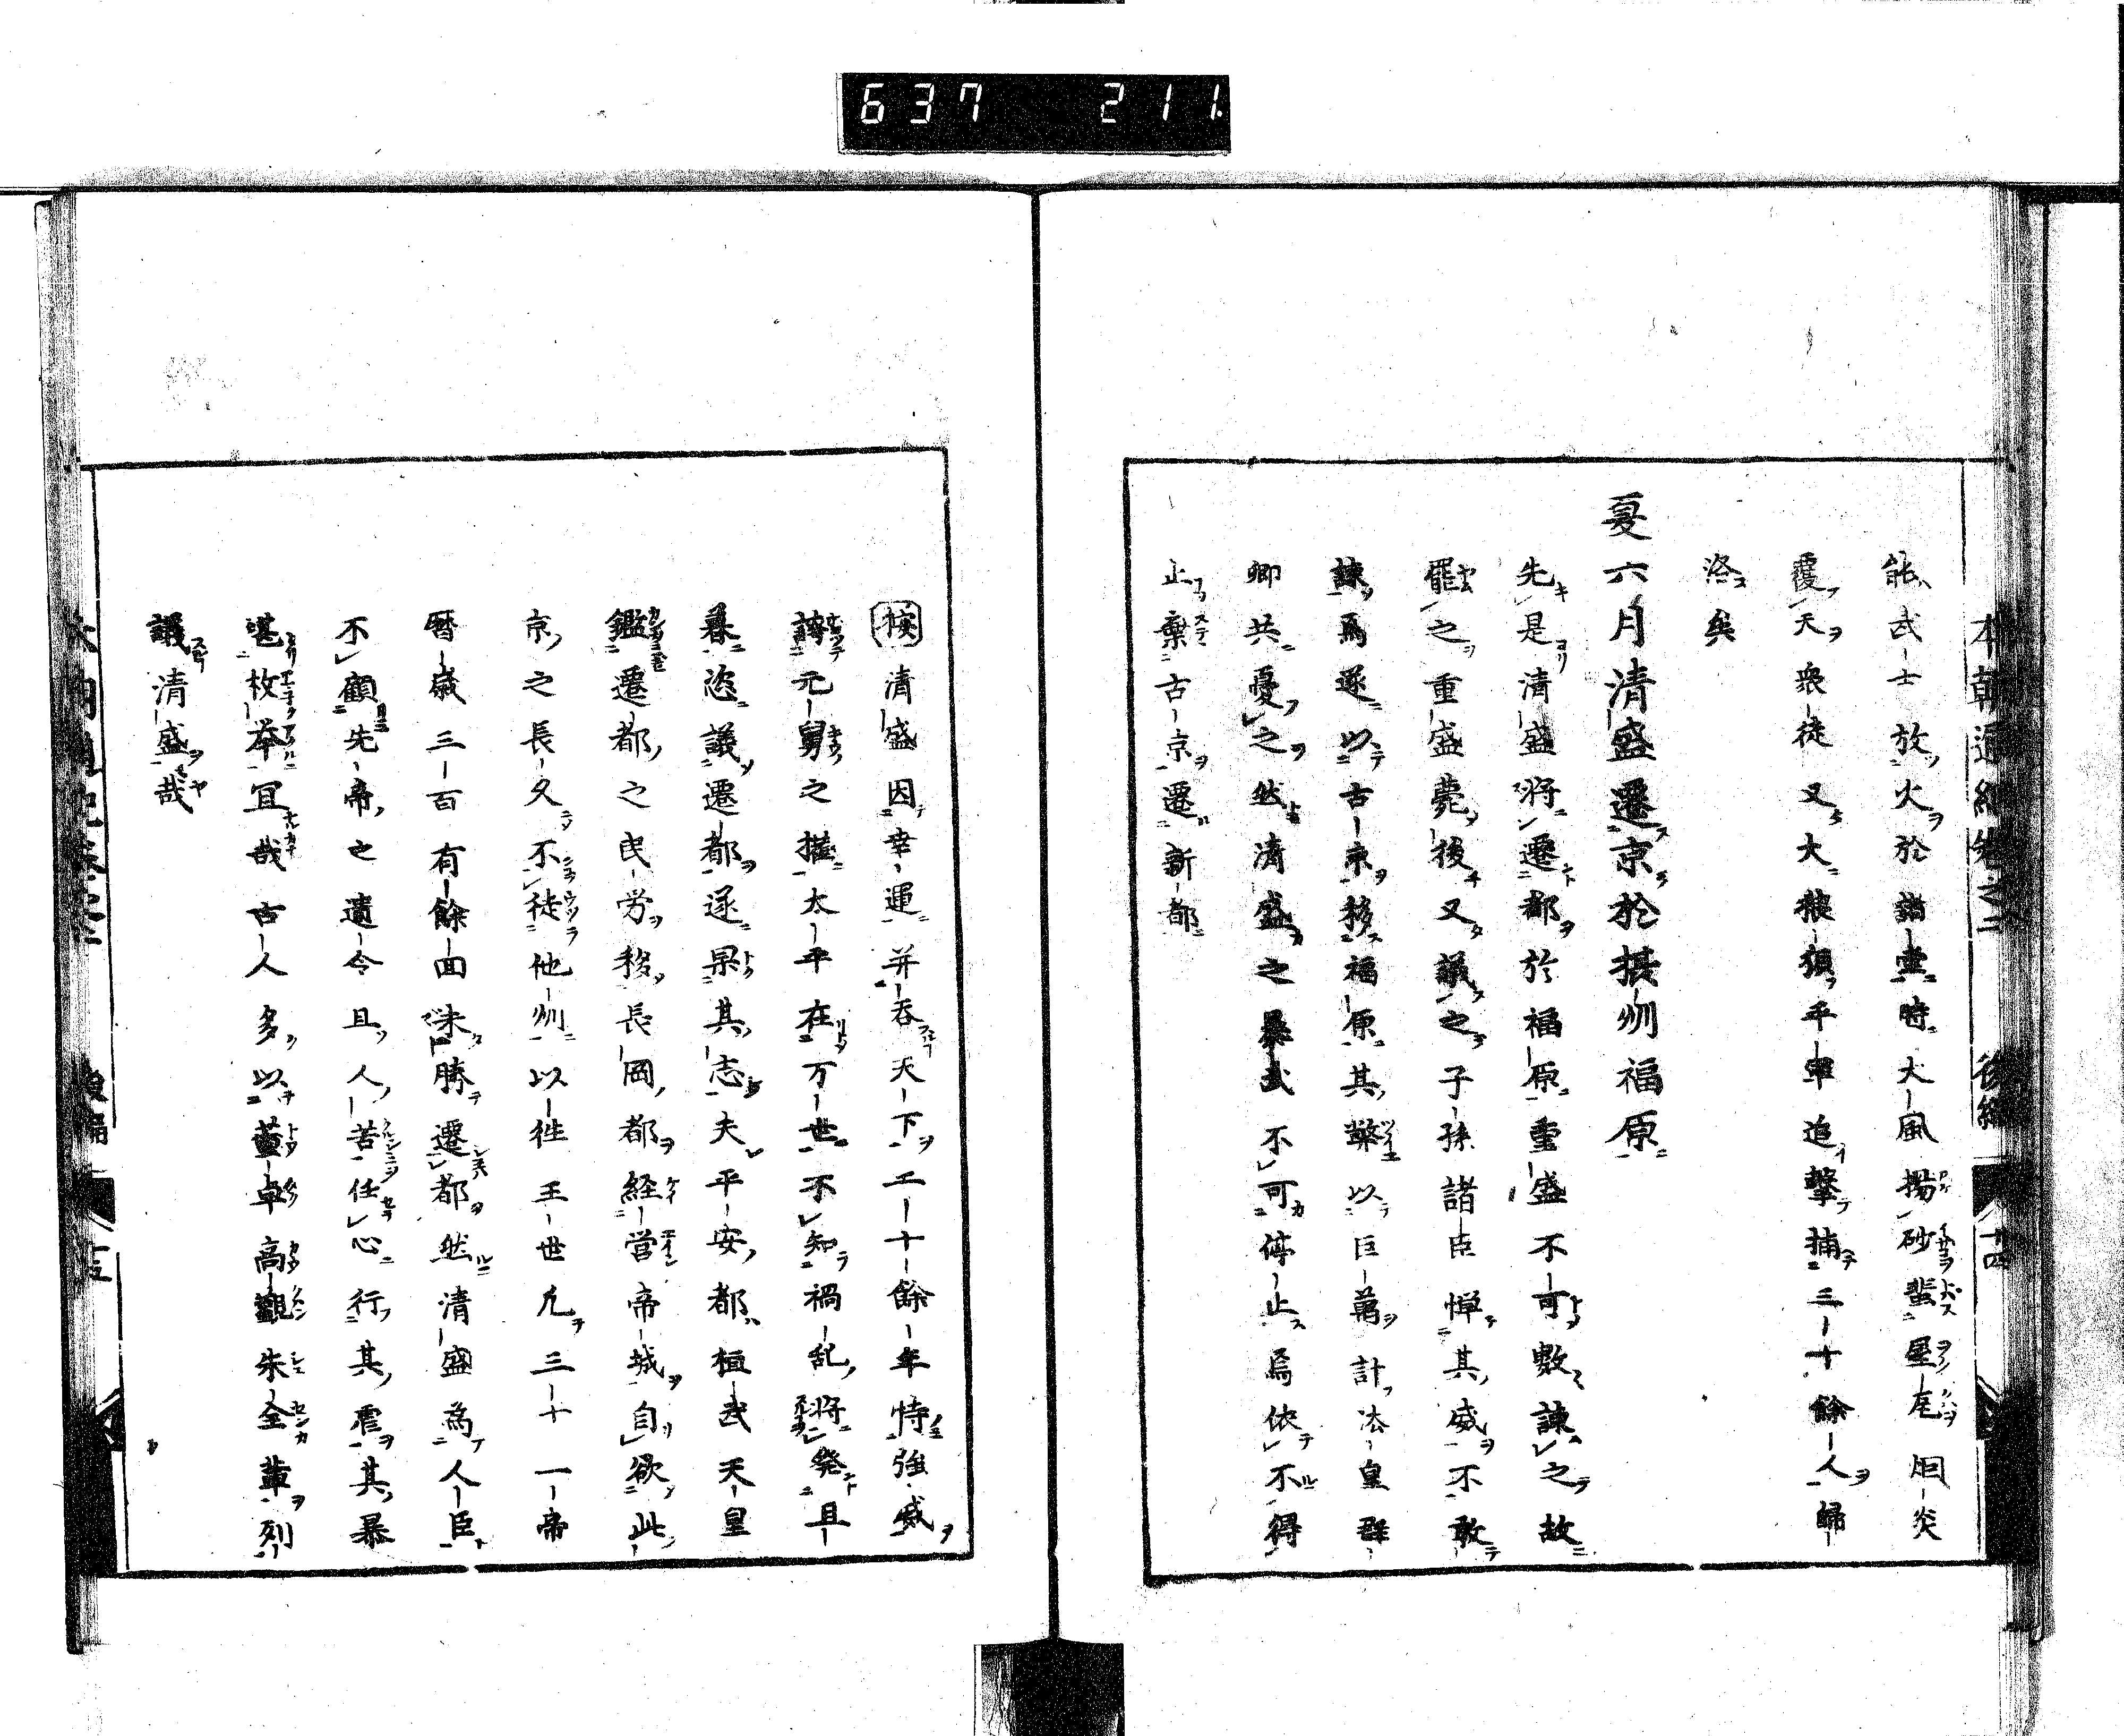 637 211
能武士放火於諸堂時大風揚砂蜚屋庭烟炎
覆天衆徒又大狼狽平軍追撃捕三十餘人歸
洛矣
夏六月清盛遷京於摂州福原
先是清盛将遷都於福原重盛不可數諫之故
罷之重盛薨後又議之子孫諸臣憚其威不敢
諫焉遂以古京移福原其弊以巨萬計法皇群
卿共憂之然清盛之暴武不可停止焉依不得
止棄古京遷新都
按清盛因幸運并吞天下二十餘年恃強威
誇元舅之權太平在万世不知禍乱将発且
暮恣議遷都遂果其志夫平安都桓武天皇
鑑遷都之民労移長岡都経営帝城自欲此
京之長久不徒他州以徃王世凡三十一帝
暦歳三百有餘回未勝遷都然清盛為人臣
不顧先帝之遺令且人苦任心行其虐其暴
堪枚挙冝哉古人多以董卓高觀朱全輩列
議清盛哉